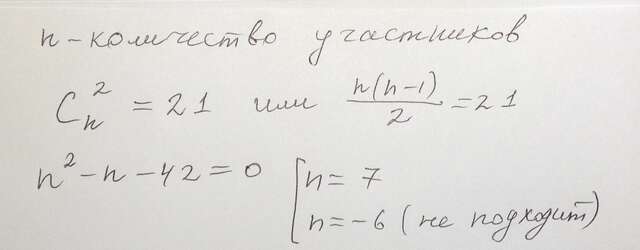 n - количество участников
C_n^2 = 21 или n(n-1)/2 = 21
n^2 - n - 42 = 0 [n = 7
n = -6 (не подходит)